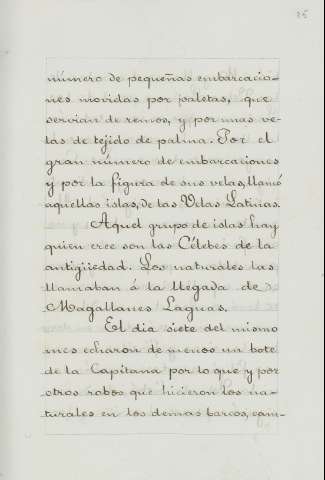 número de pequeñas embarcacio-
nes movidas por paletas, que
servian de remos, y por unas ve-
las de tejido de palma. Por el
gran número de embarcaciones
y por la figura de sus velas, llamó
aquellas islas, de las Velas Latinas.
Aquel grupo de islas hay
quien cree son las Célebes de la
antigüedad. Los naturales las
llamaban á la llegada de
Magallanes Laguas.
El dia siete del mismo
mes echaron de menos un bote
de la Capitana por lo que y por
otros robos que hicieron los na-
turales en los demas barcos, cam-